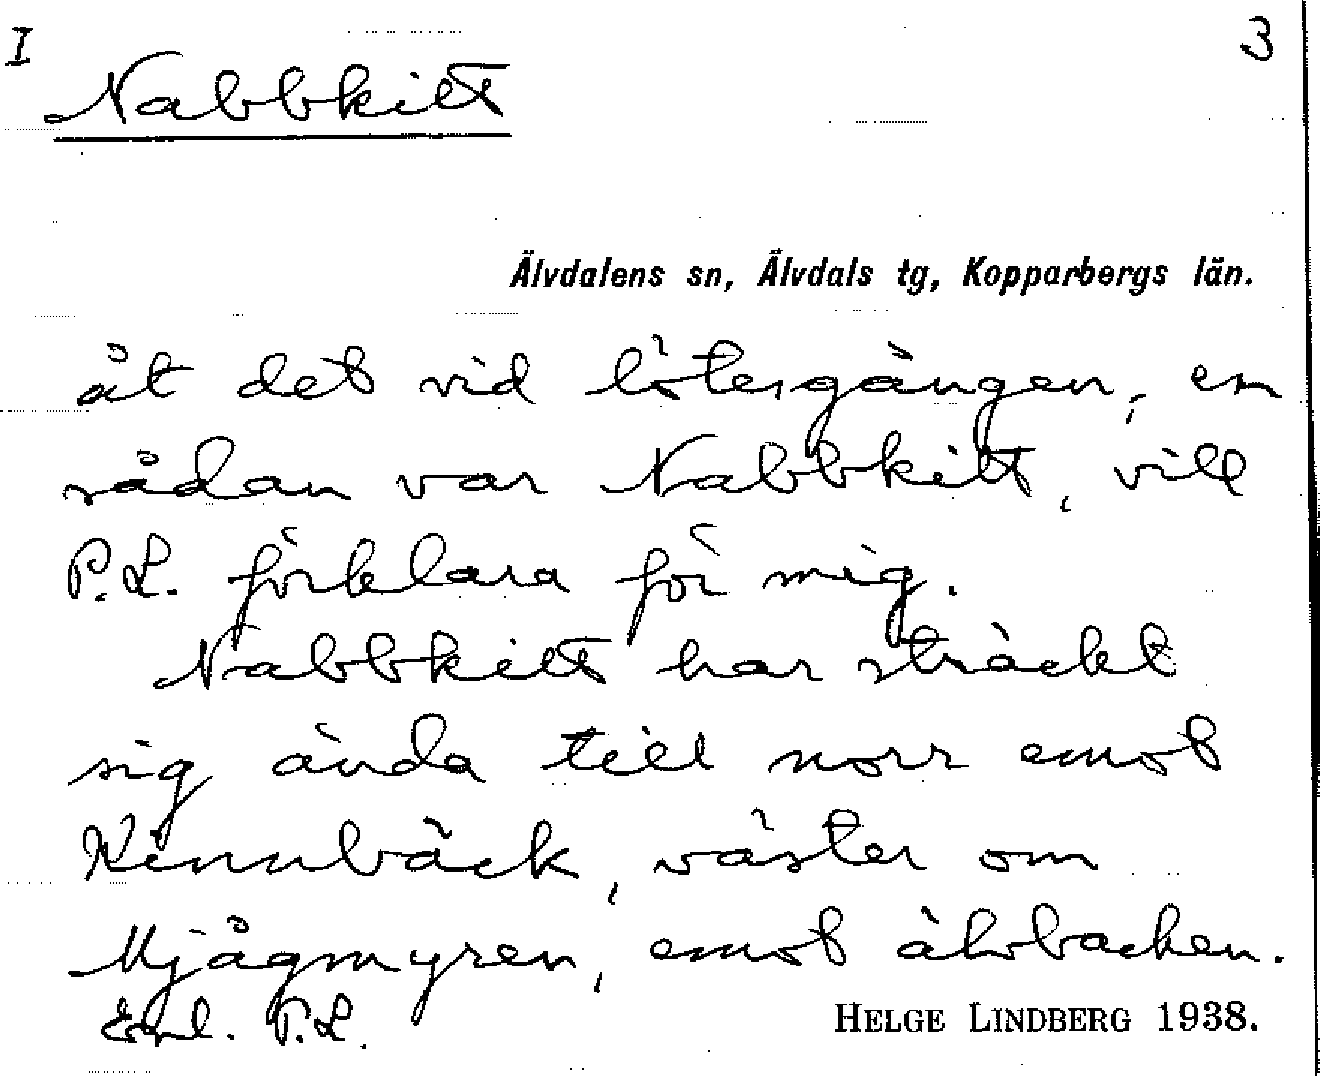 I
3
Nabbkilt
Älvdalens sn, Älvdals tg, Kopparbergs län.
åt det vid lötesgången, en
sådan var Nabbkilt, vill
P.L. förklara för mig.
Nabbkilt har sträckt
sig ända till norr emot
Kinnbäck, väster om
Mjågmyren, emot älvbacken.
Enl. P.L.
HELGE LINDBERG 1938.